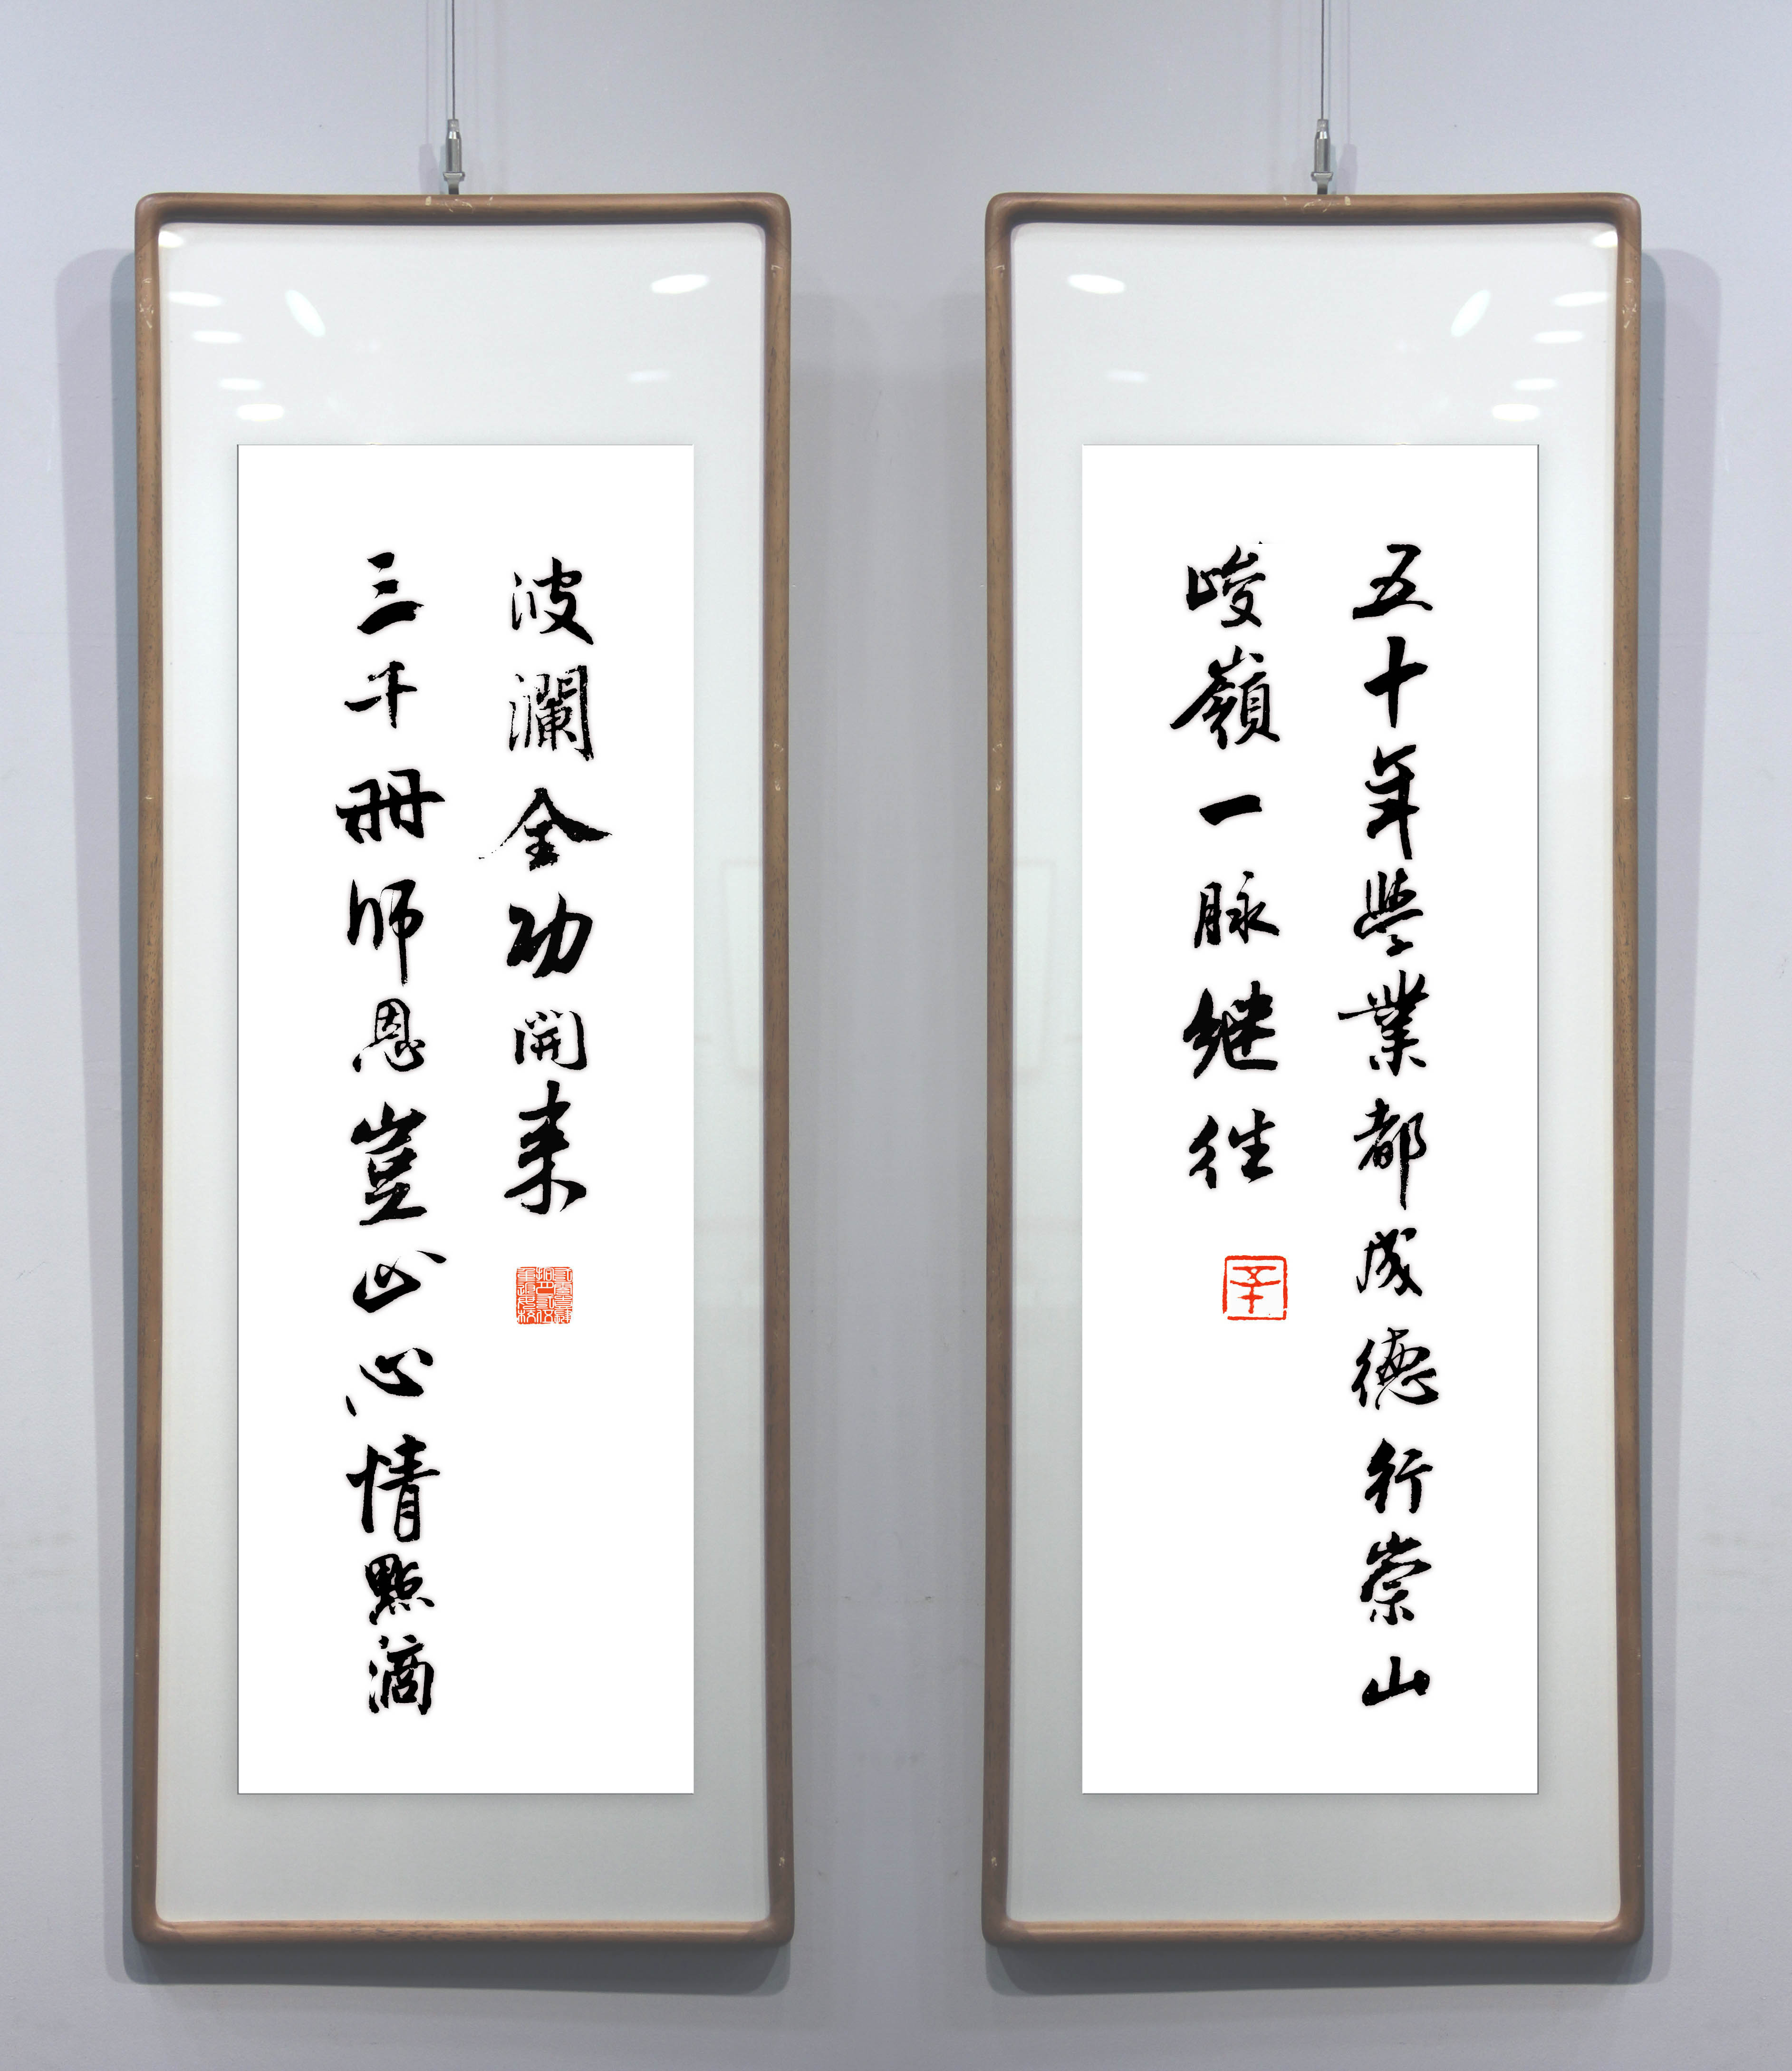 五十年學業都成德行崇山
峻嶺一脉继往
三千冊师恩豈止心情點滴
波瀾全功開来